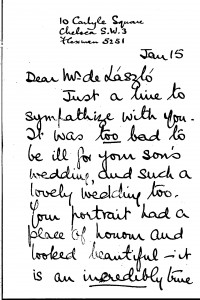 10 Carlyle Square
Chelsea S.W.3
Flaxman 5251
Jan 15
Dear Mr. de László
Just a line to
sympathize with you.
It was too bad to
be ill for your son's
wedding, and such a
lovely wedding too.
Your portrait had a
place of honour and
looked beautiful – it
is an incredibly true